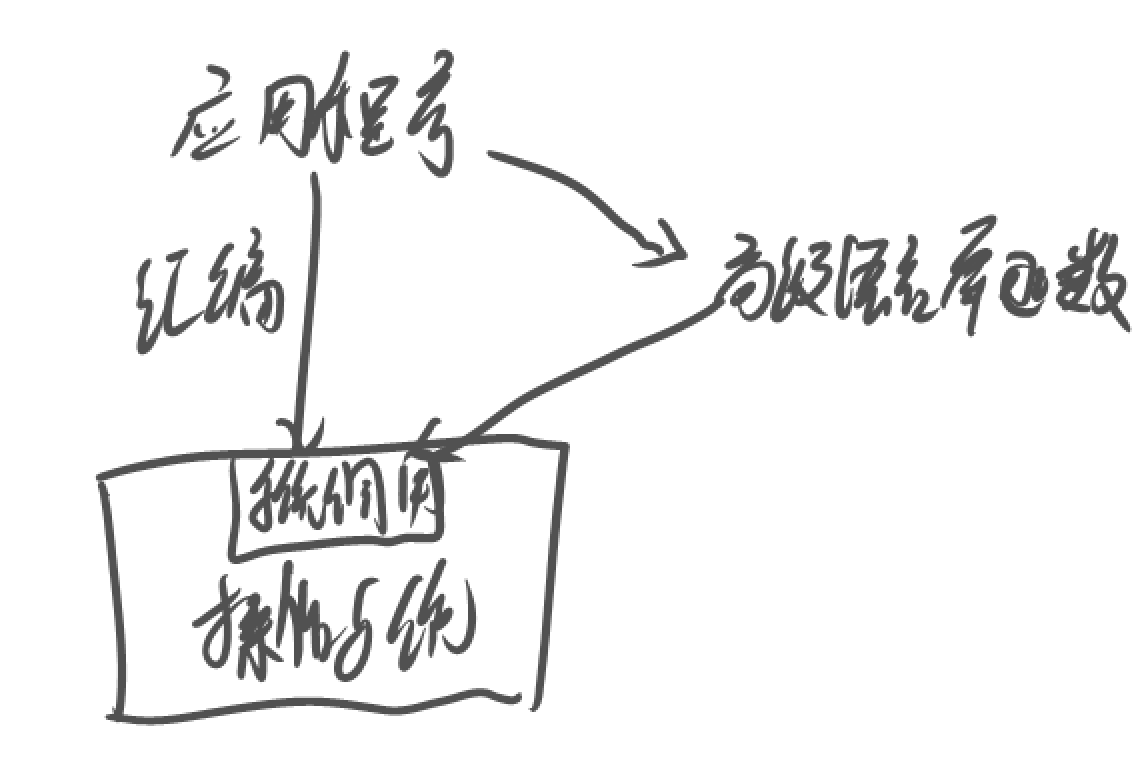 应用程序
汇编
高级语言库函数
系统调用
操作系统